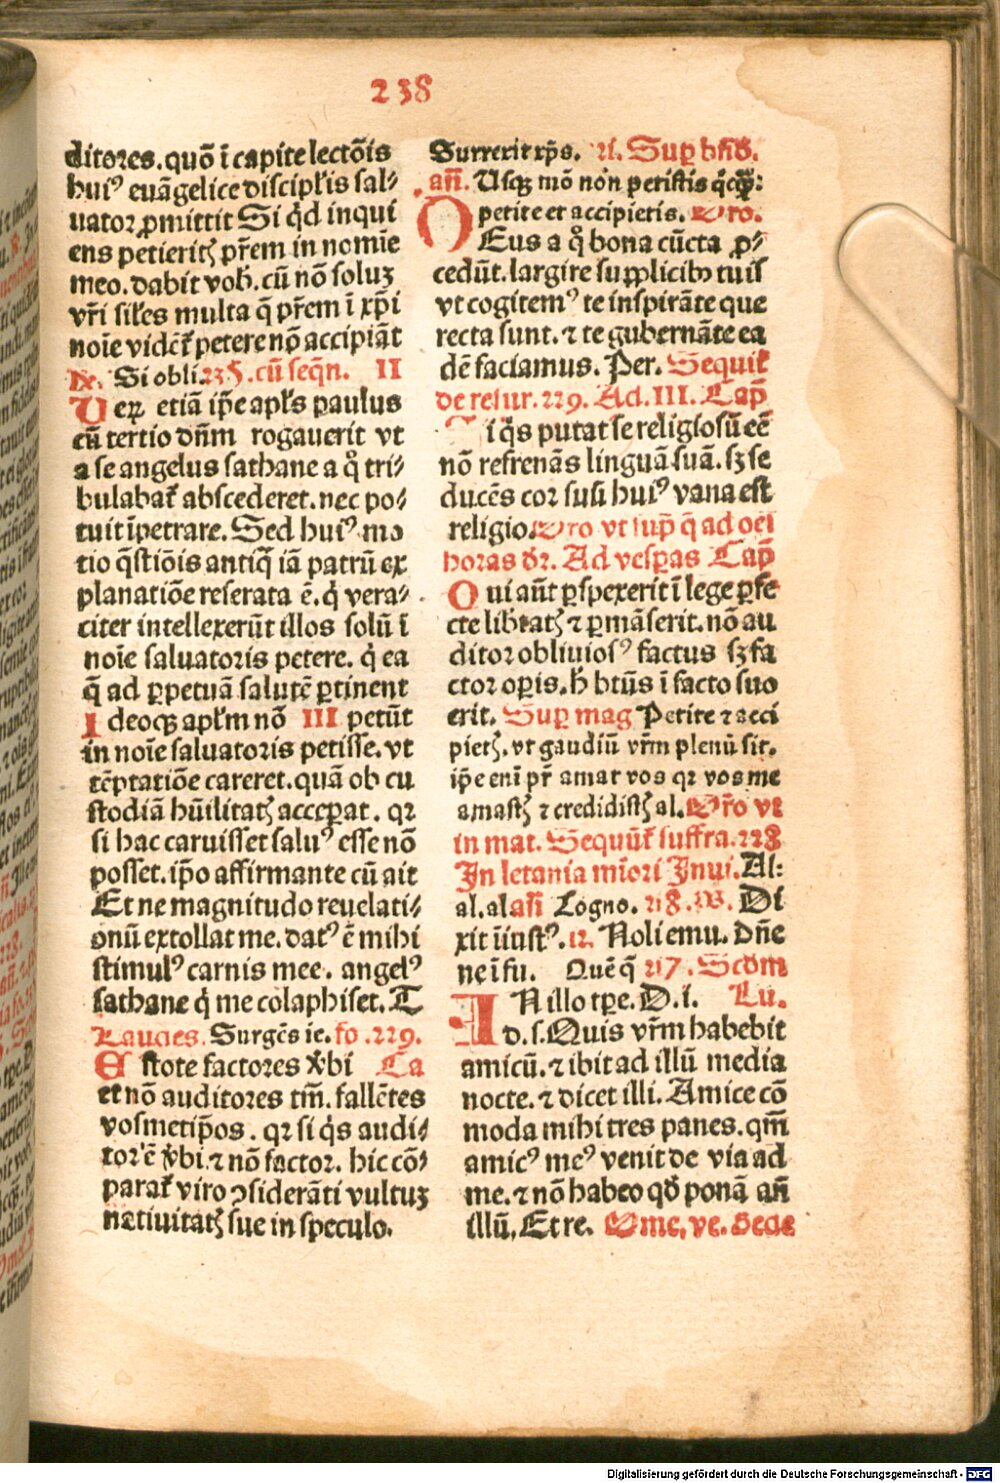 238
ditores. quō ī capite lectōis
huiꝰ euāgelice discipl̄is sal⸗
uator ꝓmittit Si q̇d inqui
ens petieritꝭ pr̄em in nomīe
meo. dabit vob̄. cū nō soluꝫ
vr̄i sil̄es multa q̄ pr̄em ī xp̄i
noīe vidēt̄ petere nō accipiāt
Si obli. 235. cū seq̄n. II
Ueꝝ etiā ip̄e apl̄s paulus
cū tertio dn̄m rogauerit vt
a se angelus sathane a q̊ tri⸗
bulabat̄ abscederet. nec po⸗
tuit īpetrare. Sed huiꝰ mo
tio q̄stiōis antiq̄ iā patrū ex
planatiōe reserata ē. q̇ vera⸗
citer intellexerūt illos solū ī
noīe saluatoris petere. q̇ ea
q̄ ad ꝑpetuā salutē ꝑtinent
Ideoqꝫ apl̄m nō III petūt
in noīe saluatoris petisse. vt
tēptatiōe careret. quā ob cu
stodiā hūilitatꝭ acceꝑat. qꝛ
si hac caruisset saluꝰ esse nō
posset. ip̄o affirmante cū ait
Et ne magnitudo reuelati⸗
onū extollat me. datꝰ ē mihi
stimulꝰ carnis mee. angelꝰ
sathane q̇ me colaphiset. T
Laudes. Surgēs ie. fo. 229.
Estote factores v̄bi Ca
et nō auditores tm̄. fallētes
vosmetip̄os. qꝛ si q̇s audi⸗
tor ē v̄bi ⁊ nō factor. hic cō⸗
parat̄ viro ꝯsiderāti vultuꝫ
natiuitatꝭ sue in speculo.
Surrexit xp̄s. Suꝑ bn̄d.
an̄. Usqꝫ mō non petistis q̇cq̄ꝫ:
petite et accipietis. Oro.
DEus a q̊ bona cūcta ꝓ⸗
cedūt. largire supplicibꝫ tuis
vt cogitemꝰ te inspirāte que
recta sunt. ⁊ te gubernāte ea
dē faciamus. Per. Sequit̄
de resur. 229. Ad. III. Cap̄
Si q̇s putat se religiosū eē
nō refrenās linguā suā. sꝫ se
ducēs cor suū huiꝰ vana est
religio. Oro vt sup̄ q̄ ad oēs
horas dr̄. Ad vesꝑas Cap̄
Qui aūt ꝑspexerit ī lege ꝑfe
cte lib̄tatꝭ ⁊ ꝑmāserit. nō au
ditor obliuiosꝰ factus sꝫ fa
ctor oꝑis. h̄ btūs ī facto suo
erit. Suꝑ mag Petite ⁊ acci
pietꝭ. vt gaudiū vr̄m plenū sit.
ip̄e eni pr̄ amat vos qꝛ vos me
amastꝭ ⁊ credidistꝭ al. Or̄o vt
in mat. Sequūt̄ suffra. 228
In letania mīori Inui. Al:
al. al asī Logno. 218. Di
xit iīustꝰ. 12. Noli emu. Dn̄e
ne ī fu. Quē q̄ 217. Scdm
IN illo tp̄e. D. i. Lu.
d. s. Quis vr̄m habebit
amicū. ⁊ ibit ad illū media
nocte. ⁊ dicet illi. Amice cō
moda mihi tres panes. qm̄
amicꝰ meꝰ venit de via ad
me. ⁊ nō habeo qd̄ ponā an̄
illū. Et re. Ome. ve. Bede
Digitalisierung gefördert durch die Deutsche Forschungsgemeinschaft - DFG